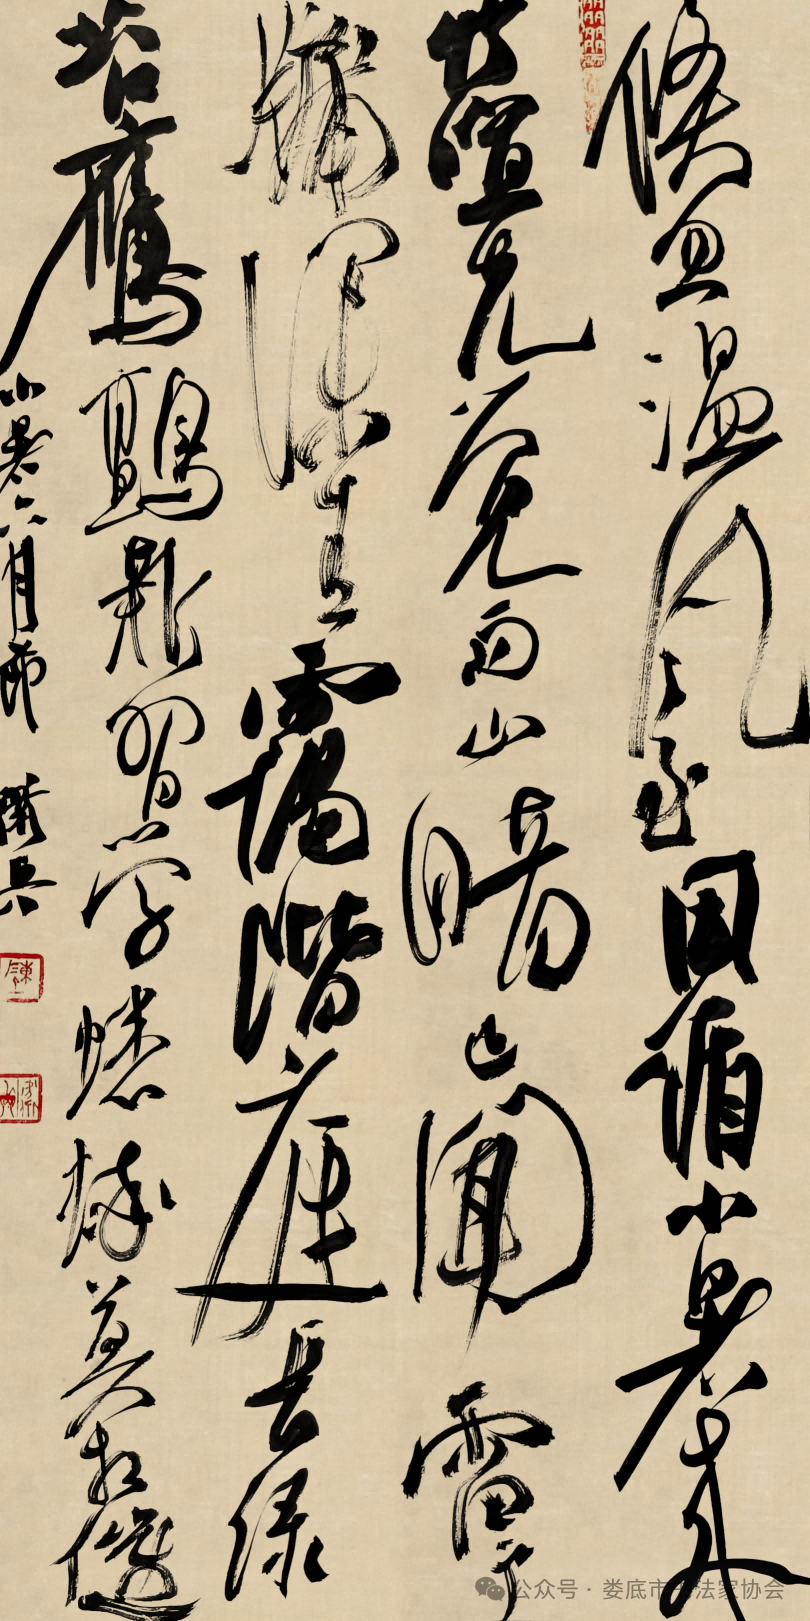 倏忽温风至因循小暑来
竹喧先觉雨山暗已闻雷户
牖深青霭阶庭长绿
苔鹰鹯新习学蟋蟀莫相催
小暑六月节
公众号·娄底市书法家协会